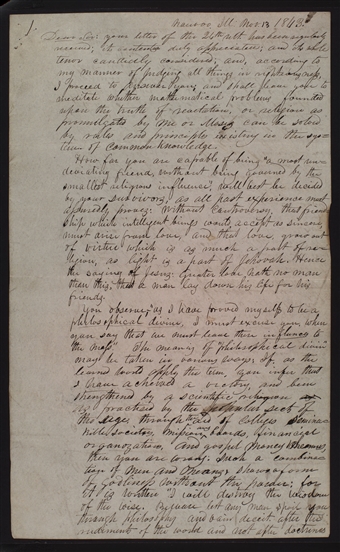 1.
Nauvoo Ill. Nov. 13, 1843.
Dear sir: your letter of the 24th ult. has been regularly
receivd; its contents duly appreciated; and its whole
tenor candidly considered; and, according to
my manner of judging all things in righteousness,
I proceed to answer you; and shall leave you to
meditate whether mathematical problems founded
upon the truth of revelation, or religion as
promulgated by me or Moses can be solved
by rules and principles existing in the sys-
tem of common knowledge.
How far you are capable of being "a most un-
deviating friend, without being governed by the
smallest religious influence," will best be decided
by your survivors, as all past experience most
assuredly proves: Without controversy, that friend-
ship which intelligent beings would accept as sincere,
must arise from love, and that love grow out
of virtue which is as much a part of re-
ligion, as light is a part of Jehovah. Hence
the saying of Jesus: Greater love hath no man
than this, that a man lay down his life for his
friends.
You observe, "as I have proved myself to be a
philosophical divine," I must excuse you, when
you say that we must leave these influences to
the mass. The meaning of "philosophical divine"
may be taken in various ways. If, as the
learned world apply the term, you infer that
I have achieved a victory, and been
strengthened by a scientific religion
as practised by the popular sects of
the age, through the aid of colleges, semina-
ries, Bible societies, missionary boards, financial
organizations, and gospel money schemes,
then you are wrong. Such a combina-
tion of men and means, shows a form
of Godliness without the power; for
it is written "I will destroy the wisdom
of the wise. Beware lest any man spoil you
through philosophy and vain deceit after the
rudiments of the world and not after doctrines